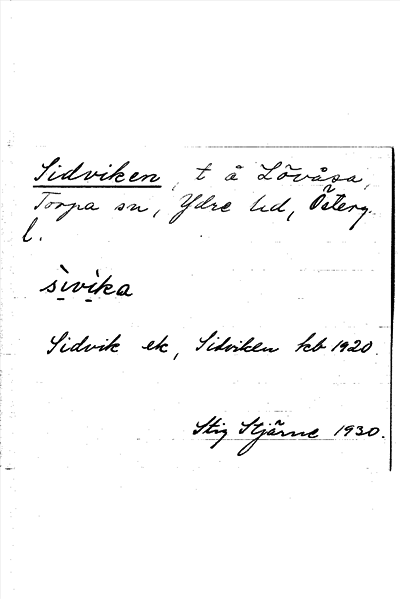 Sidviken, t å Lövåsa,
Torpa sn, Ydre hd, Österg.
l.
sìvìka
Sidvik ek, Sidviken kb 1920.
Stig Stjärne 1930.